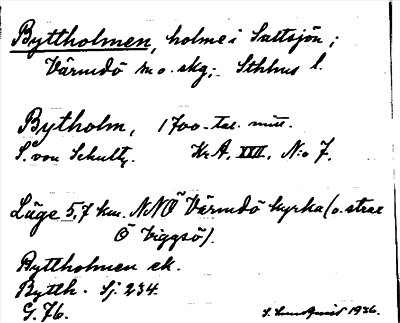 Byttholmen, holme i Saltsjön;
Värmdö sn o. skg; Sthlms l.
Bytholm, 1700-tal. mitt.
S. von Schultz. Kr A, XXII, N:o 7.
Läge 5,7 km. NNÖ Värmdö kyrka (o. strax
Ö Viggsö).
Byttholmen ek.
Bytth. Sj. 234.
G. 76. 1936.